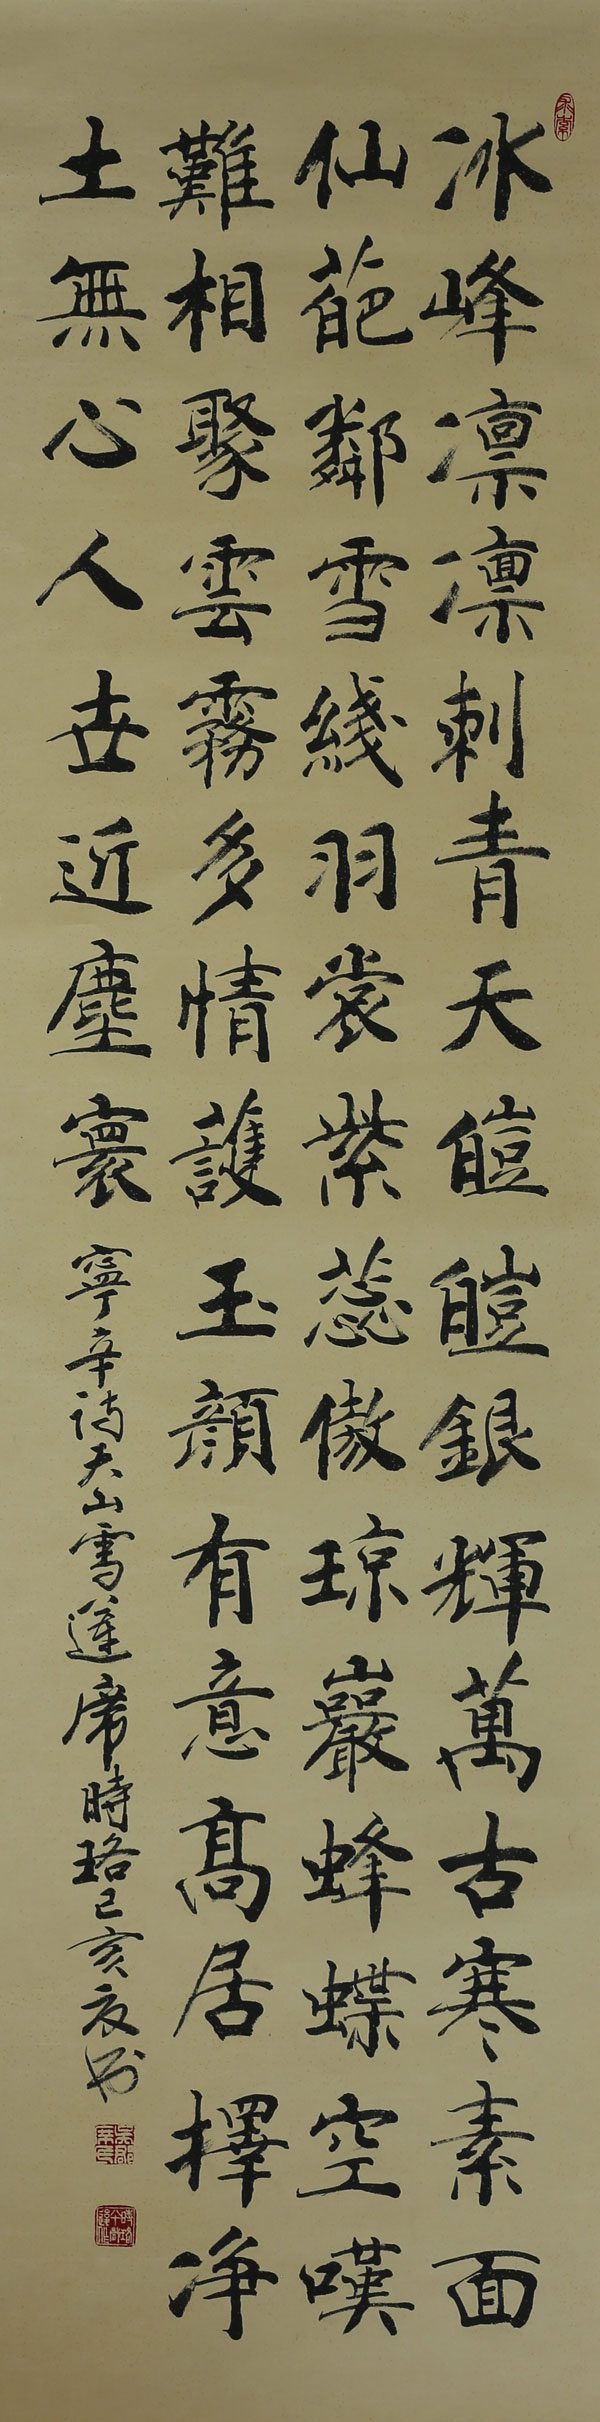 冰峰凛凛刺青天皚皚銀輝萬古寒素面
仙葩鄰雪綫羽裳紫蕊傲琼巖蜂蝶空嘆
難相聚雲霧多情護玉顔有意高居擇净
土無心人世近塵寰
寧辛诗天山雪莲席時珞己亥夏书